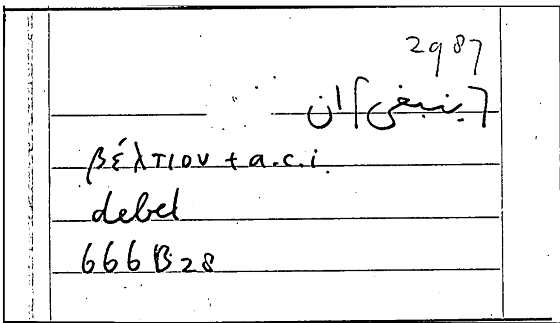 2987
[ينبغي] ان
βέλτιον + a.c.i.
debet
666 B 28